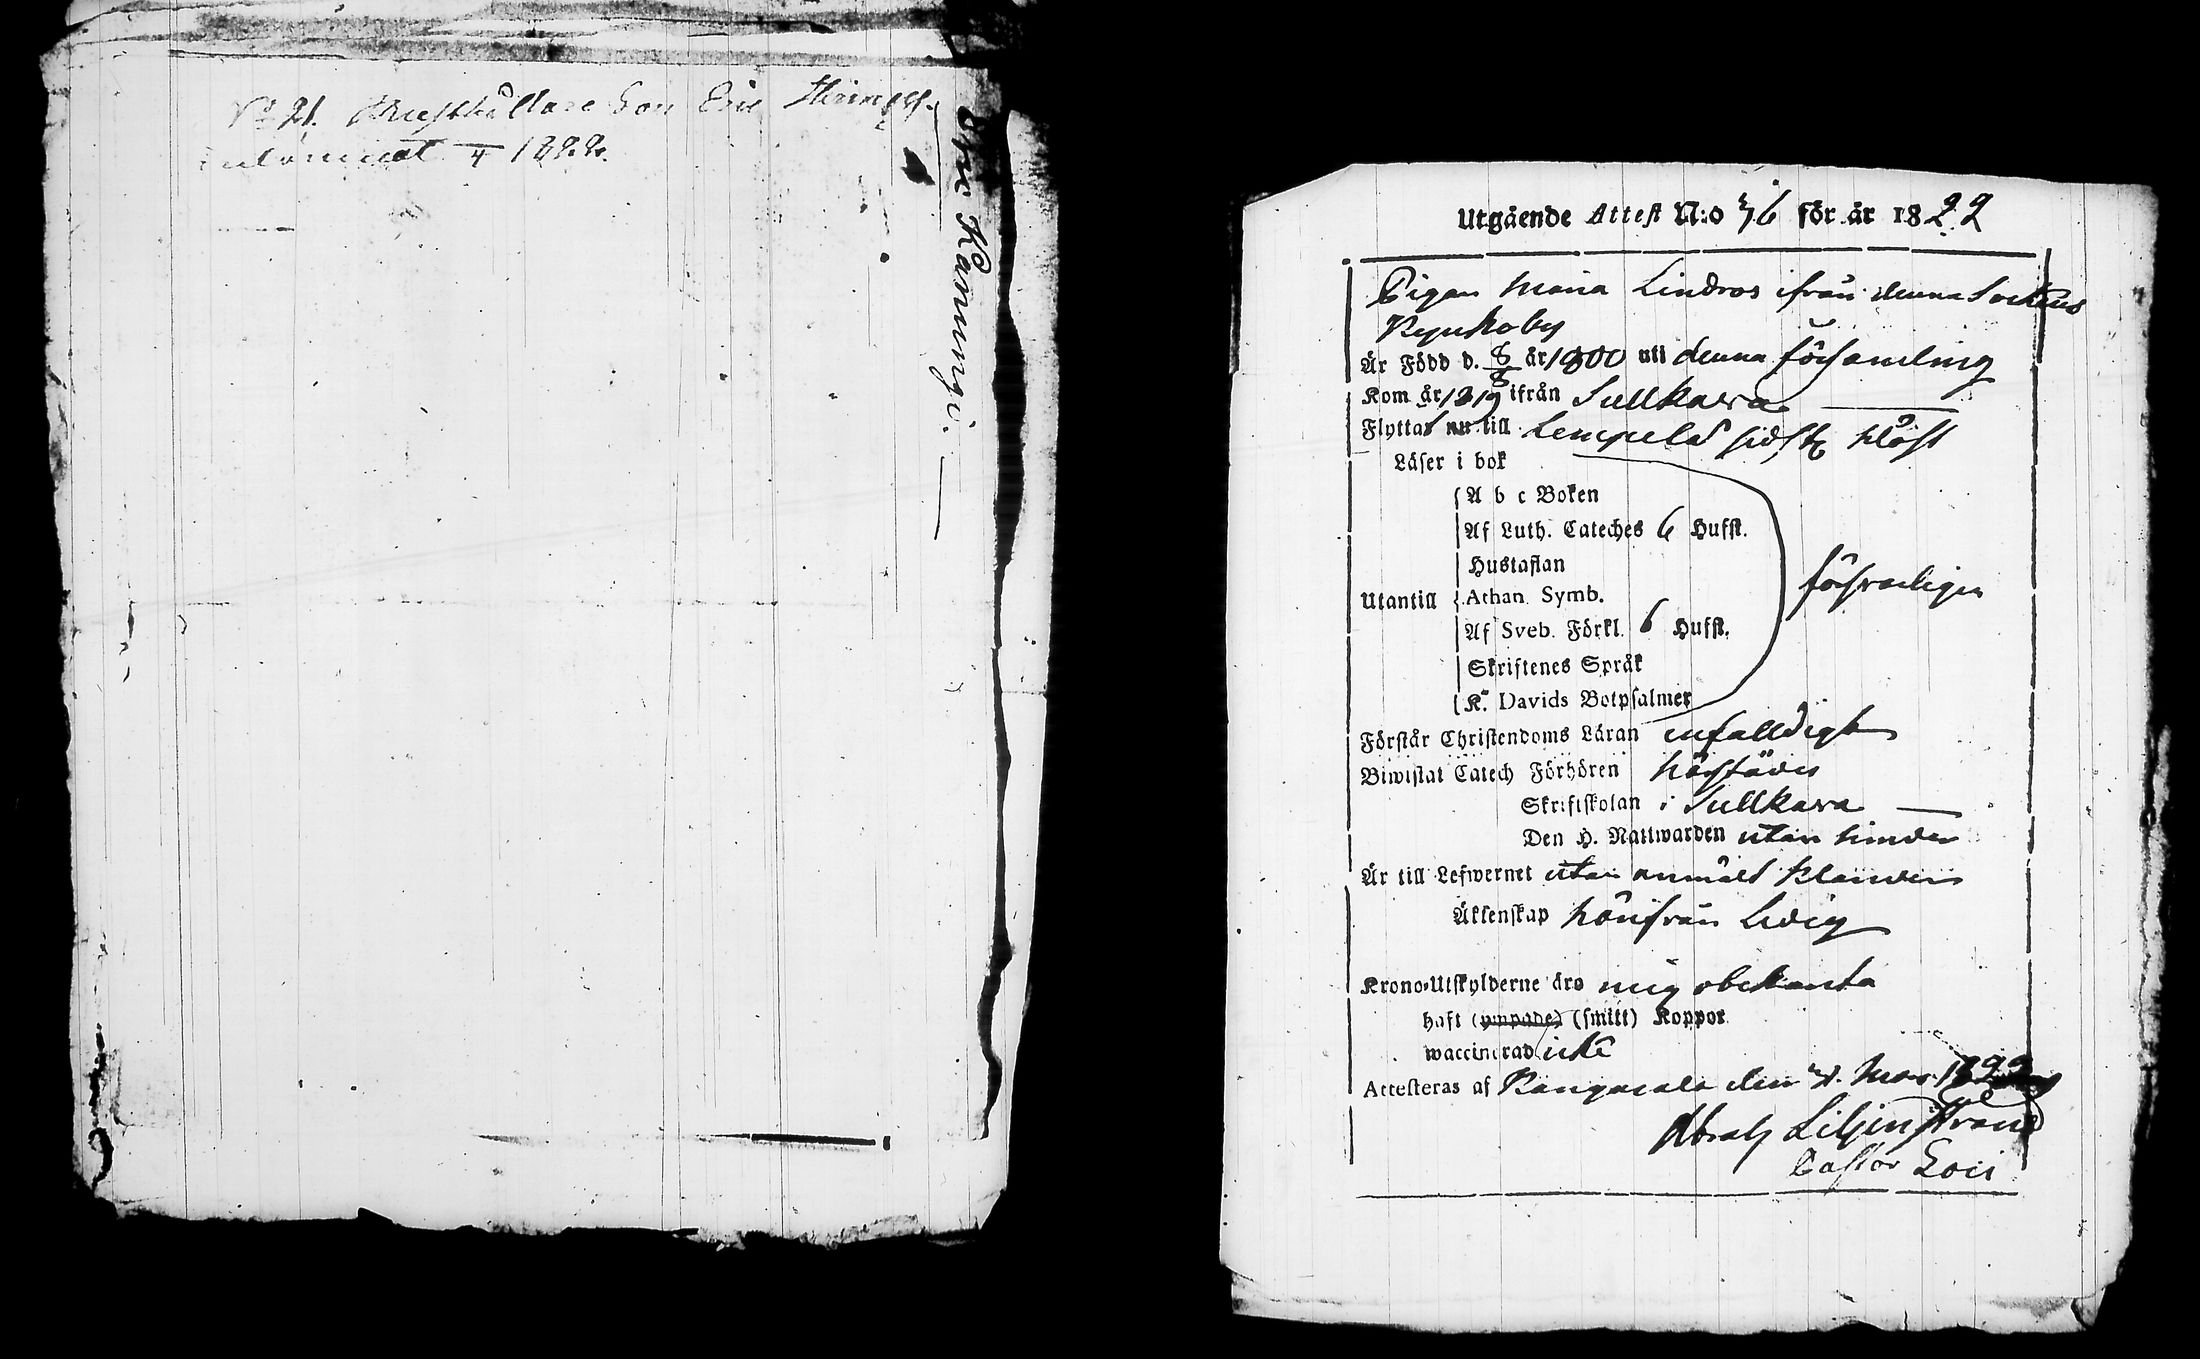 No 21. Rusthållare Son Eric Henricss.
inlemnat 4 1822.
Kamungi.
Utgående Attest N:o 76 för år 1822
Pigan Maria Lindros ifrån denna Sockens
Kyrkoby
Är Född d. 8/8 år 1800 uti denna församling
Kom år 1819 ifrån Sullkava
Flyttar nu till Lempelä sidstl. höst
Läser i bok
A b c Boken
Af Luth. Cateches 6 Hufst.
Hustaflan
Utantill Athan. Symb. försvarligen
Af Sveb. Förkl. 6 Hufst.
Skriftenes Språk
K. Davids Botpsalmer
Förstår Christendoms Läran enfalldigt
Biwistat Catech Förhören härstädes
Skriftskolan i Sullkava
Den H. Nattwarden utan hinder
Är till Lefwernet utan anmält klander
Äktenskap härifrån Ledig
Krono-Utskylderne äro mig obekanta
haft (ympade) (smitt) Koppor
waccinerad icke
Attesteras af Kangasala den 7. Mar. 1822
Abrah Liljenstrand
Pastor Loci